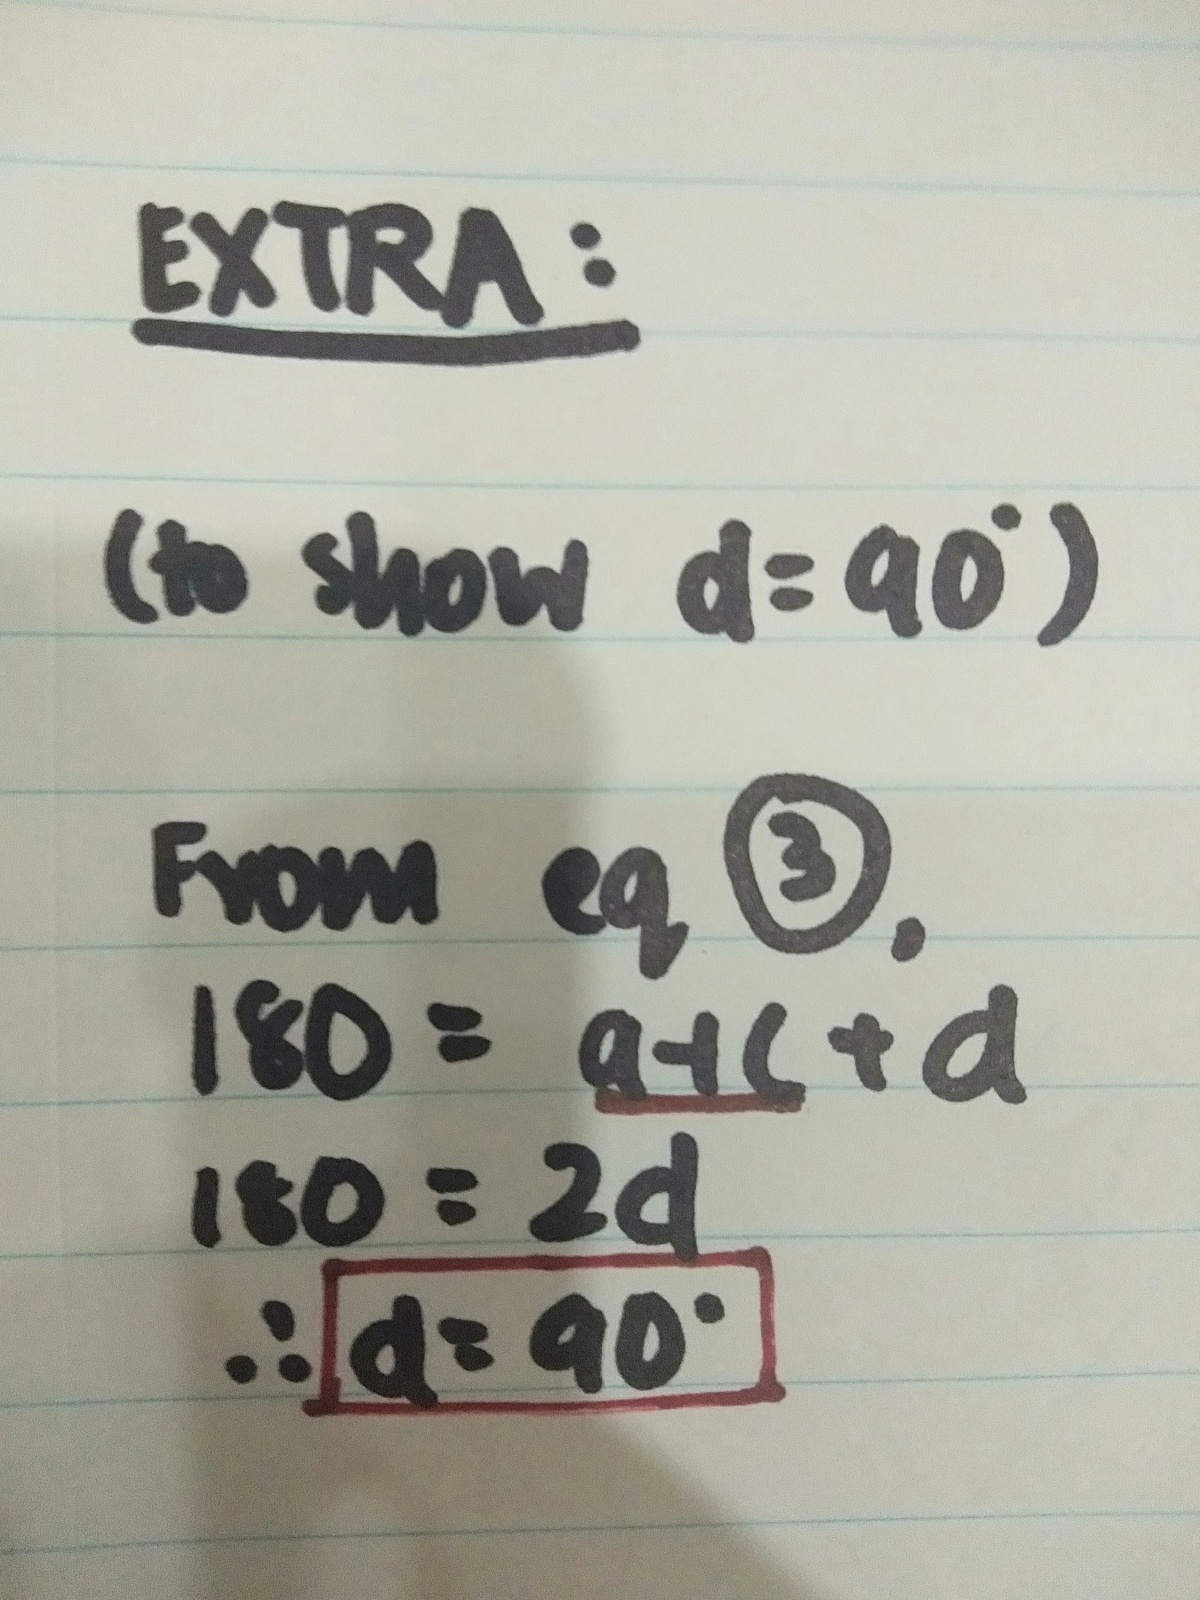 EXTRA:
(to show d=90°)
From eq ③,
180 = a+c+d
180 = 2d
∴ d=90°